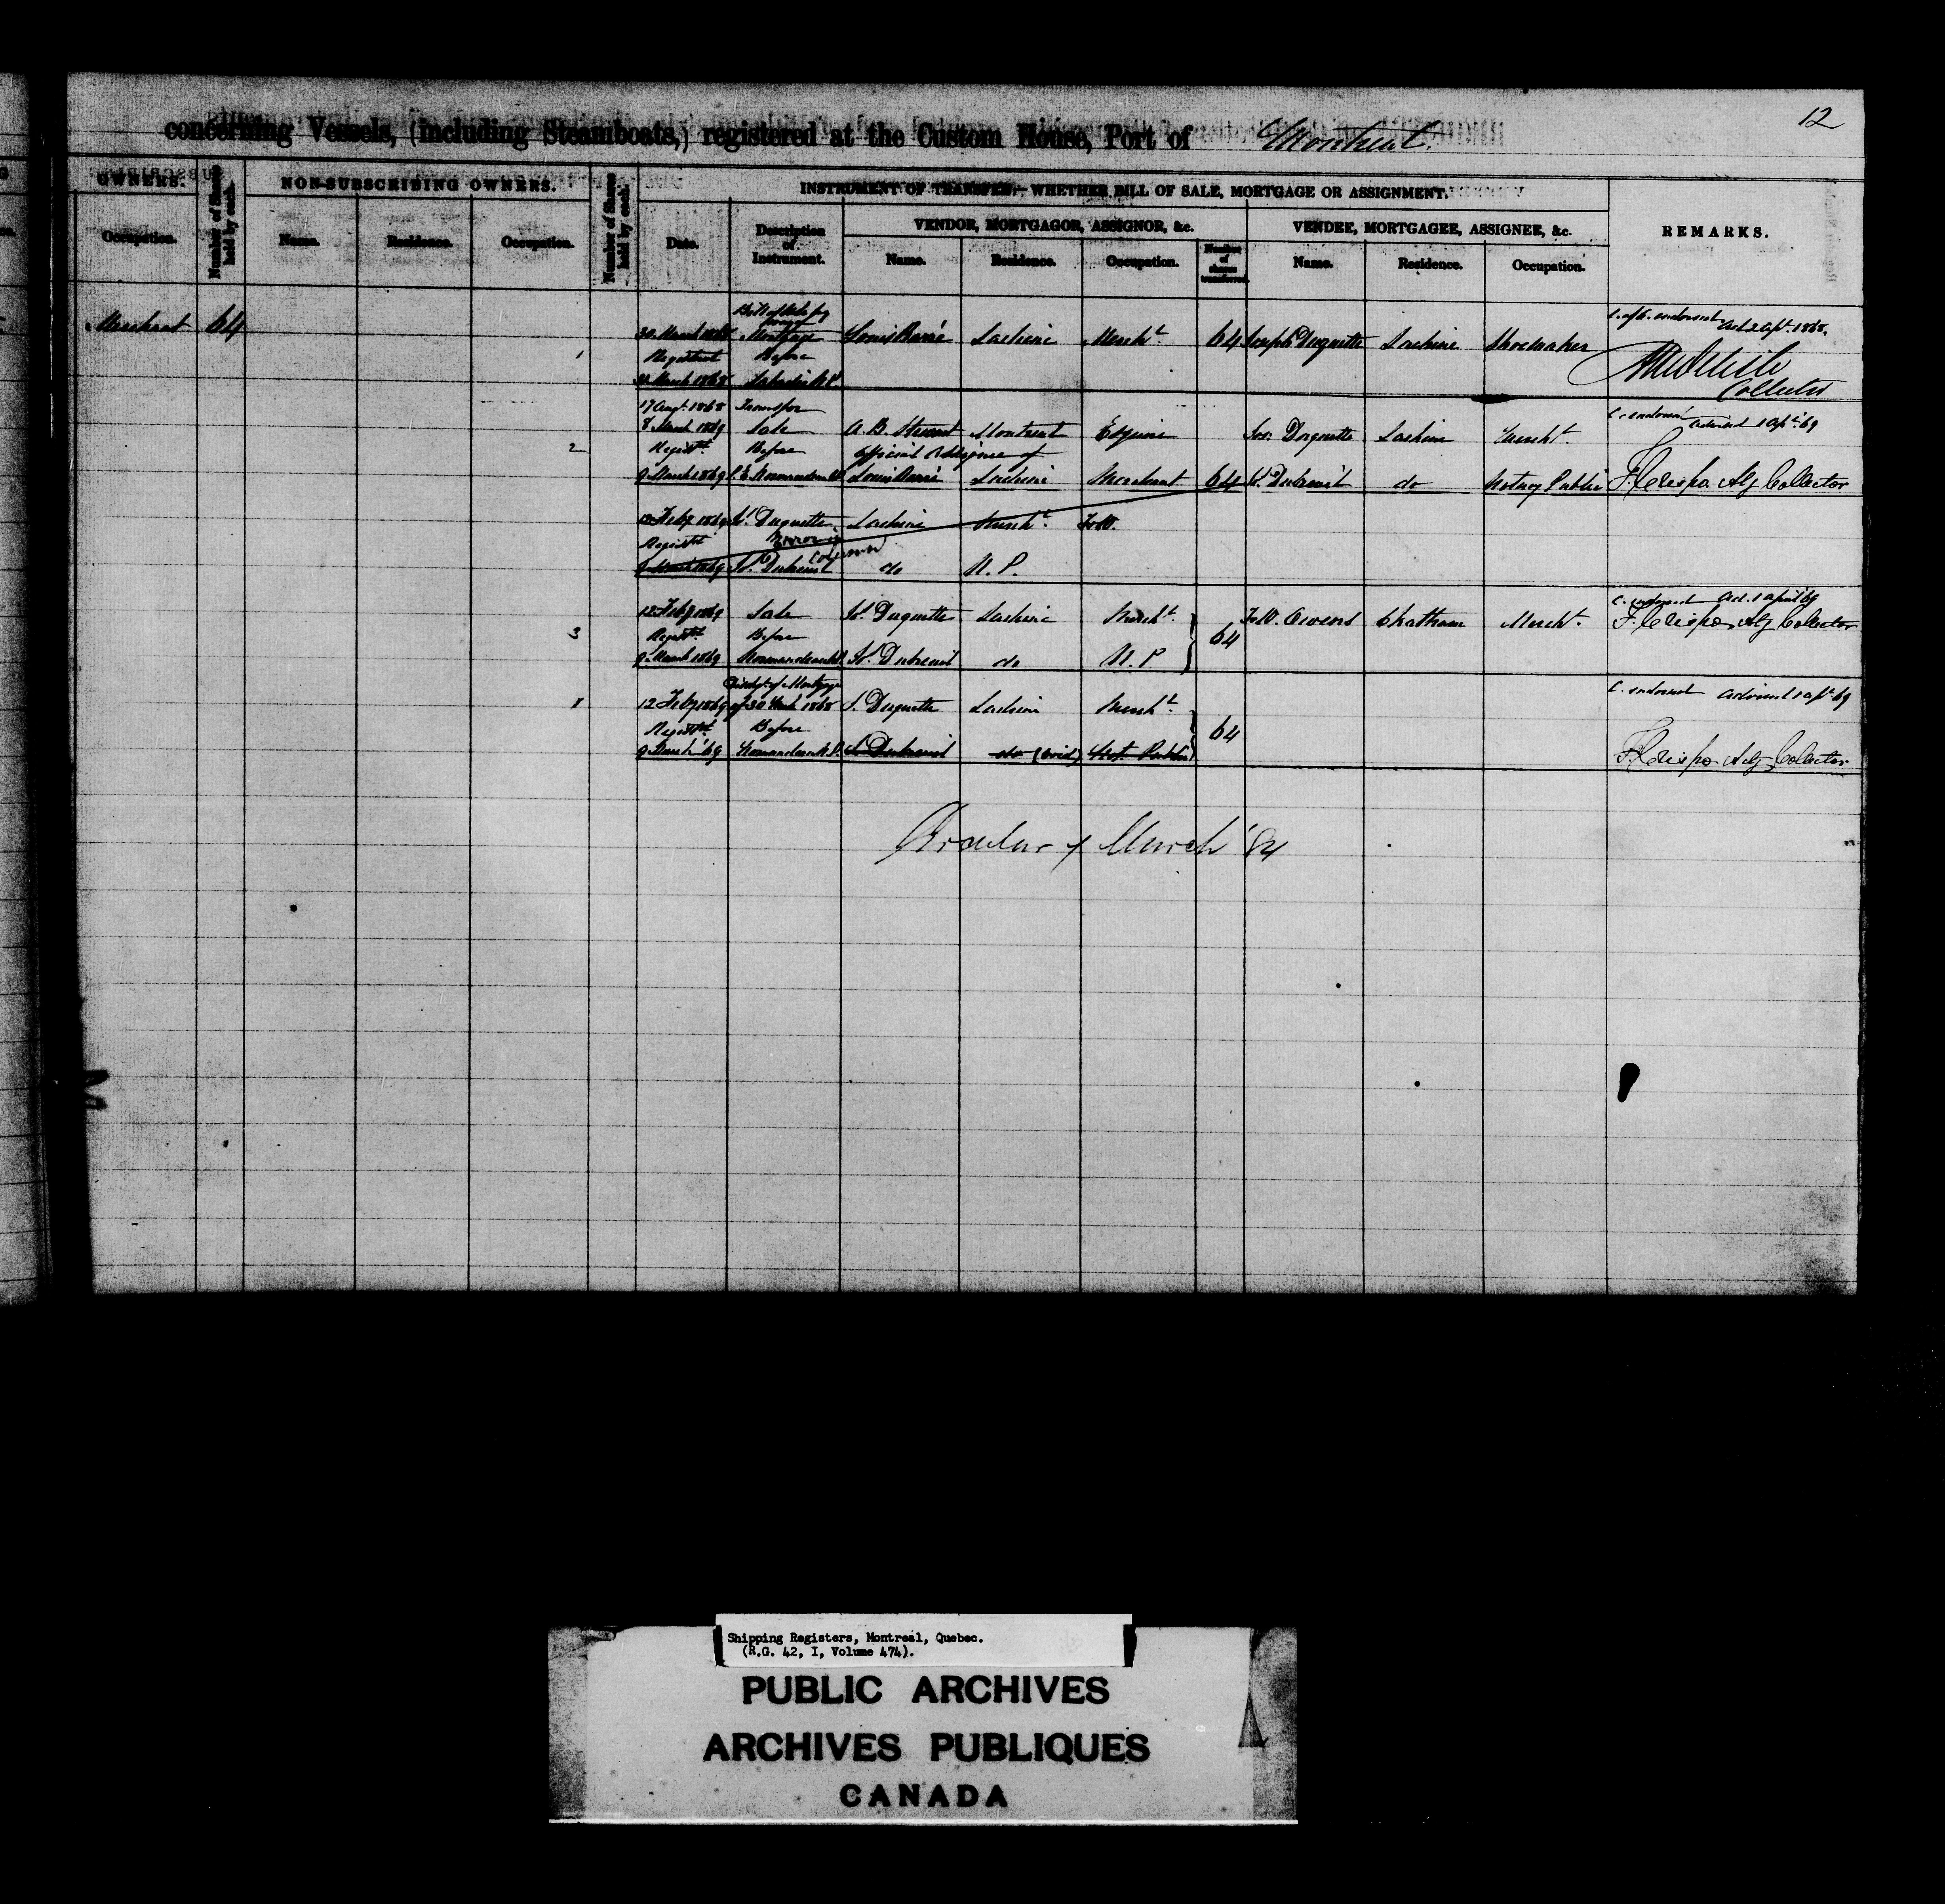 12
concerning Vessels, (including Steamboats,) registered at the Custom House, Port of Montreal.
OWNERS.
Number of Shares held by each.
NON-SUBSCRIBING OWNERS.
Number of Shares held by each.
INSTRUMENT OF TRANSFER,—WHETHER BILL OF SALE, MORTGAGE OR ASSIGNMENT.
REMARKS.
VENDOR, MORTGAGOR, ASSIGNOR, &c.
VENDEE, MORTGAGEE, ASSIGNEE, &c.
Occupation.
Name.
Residence.
Occupation.
Date.
Description of Instrument.
Name.
Residence.
Occupation.
Number of shares transferred.
Name.
Residence.
Occupation.
Bill of Sale by way
Merchant 64 30 March 1868 Mortgage Louis Paré Lachine Mercht 64 Joseph Duquette Lachine Shoemaker
1 Registered Before
31 March 1868
Collector
17 Augt. 1868 Transfer
8 March 1869 Sale A. B. Stewart Montreal Esquire Jos. Duquette Lachine Mercht. C. endorsed advised 1 Apl. 69
2 Regist. Before Official Assignee of
9 March 1869 Louis Paré Lachine Merchant 64 Dubreuil do Notary Public F. Crispo Actg Collector
12 Feby 1869 Duquette Lachine Mercht. T. W.
Registd Error in Column
9 March 1869 Dubreuil do N. P.
12 Feby 1869 Sale Duquette Lachine Mercht. T. W. Owens Chatham Mercht. C. endorsed Ad. 1 April 69
3 Registd Before 64 F. Crispo Actg Collector
9 March 1869 Normandeau N.P. Dubreuil do N. P
Discht. of Mortgage
1 12 Feby 1869 of 30 March 1868 J. Duquette Lachine Mercht. C. endorsed advised 1 Apl. 69
Registd Before 64
9 March '69 Normandeau N.P. Dubreuil do (void) Not. Public F. Crispo Actg Collector
Circular of March '84
Shipping Registers, Montreal, Quebec.
(R.G. 42, I, Volume 474).
PUBLIC ARCHIVES
ARCHIVES PUBLIQUES
CANADA